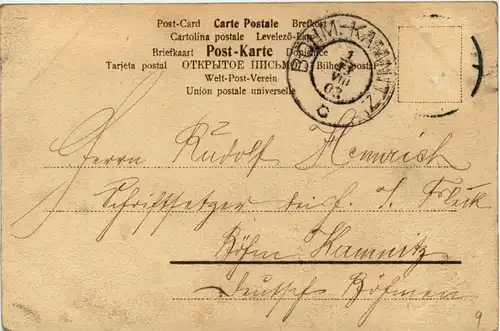 Post-Card Carte Postale Brefkort
Cartolina postale Levelező-Lap
Briefkaart Post-Karte Dopisnice
Tarjeta postal ОТКРЫТОЕ ПИСЬМО Bilhete postal
Welt-Post-Verein
Union postale universelle
BÖHM.-KAMNITZ
VIII
03
Herrn Rudolf Heinrich
Schriftsetzer
Böhm Kamnitz
Deutsch Böhmen
9